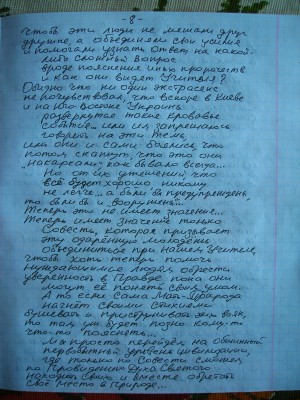 - 8 -
Чтобы эти люди не мешали друг
другу, а объединяли свои усилия
и помогали узнать ответ на какой-
либо сложный вопрос
вроде пояснения иных пророчеств
и как они видят Учителя?
Обидно что ни один экстрасенс
не почувствовал, что вскоре в Киеве
и на Юго-Востоке Украины
развернутся такие кровавые
события... или им запрещалось
говорить на эти темы
или они и сами боялись, что
потом скажут, что это они
"накаркали" как бывало всегда...
Но от их утешений, что
всё будет хорошо никому
не легче... а были бы предупреждены,
то были бы и вооружены...
Теперь это не имеет значение...
Теперь имеет значение только
Совесть, которая призывает
эту одарённую молодёжь
объединиться при нашем Учителе,
чтобы хоть теперь помочь
нуждающимся людям обрести
уверенность в Правде пока они
могут её понять своим умом.
А то если Сама Мать-Природа
начнёт Своими Стихиями
бушевать и приструнивать
то там уж будет поздно кому-то
что-то пояснять...
Мы просто перейдём на
первобытный уровень цивилизации,
где только по Совести смогут
по Провидению Духа Святого
находить Своих и вместе обретать
своё место в Природе...